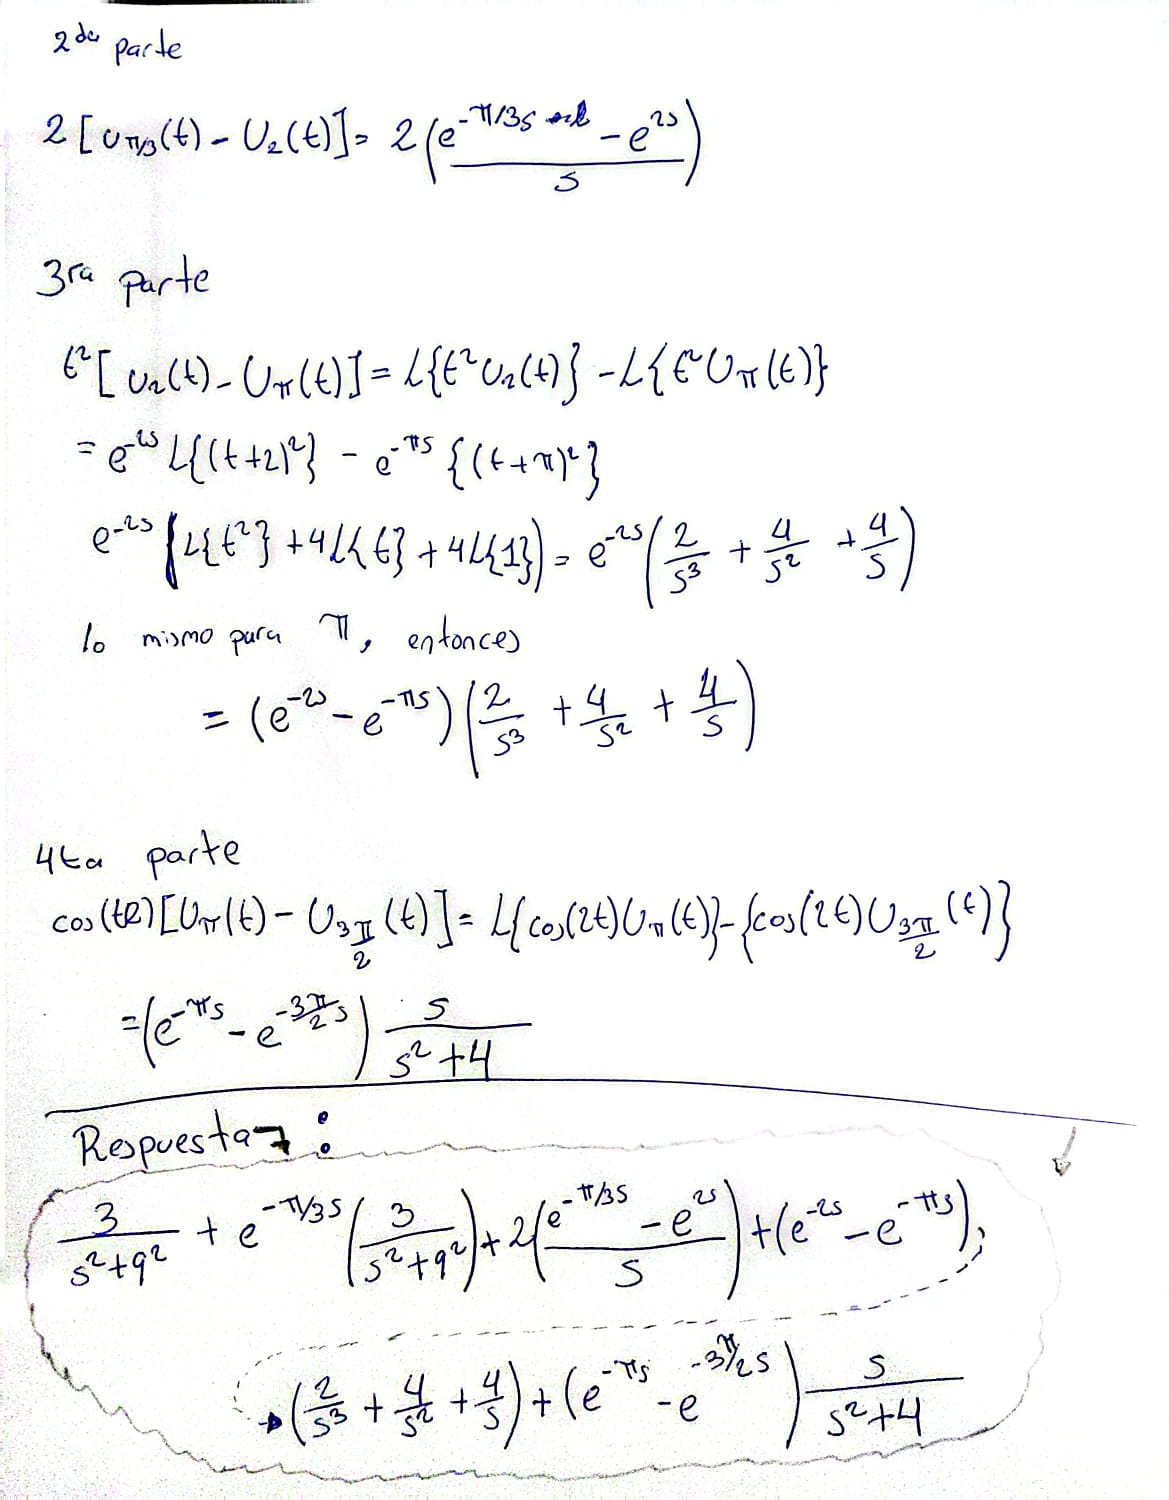 2da parte
2[U_{π/3}(t) - U_2(t)] = 2(e^{-π/3s} - e^{2s} / s)
3ra parte
t²[U_2(t) - U_π(t)] = L{t²U_2(t)} - L{t²U_π(t)}
= e^{-2s} L{(t+2)²} - e^{-πs} {(t+π)²}
e^{-2s} (L{t²} + 4L{t} + 4L{1}) = e^{-2s} (2/s³ + 4/s² + 4/s)
lo mismo para π, entonces
= (e^{-2s} - e^{-πs}) (2/s³ + 4/s² + 4/s)
4ta parte
cos(t2)[U_π(t) - U_{3π/2}(t)] = L{cos(2t)U_π(t)} - {cos(2t)U_{3π/2}(t)}
= (e^{-πs} - e^{-3π/2 s}) s/(s²+4)
Respuesta :
3/(s²+9²) + e^{-π/3s} (3/(s²+9²)) + 2(e^{-π/3s} - e^{2s} / s) + (e^{-2s} - e^{-πs})
(2/s³ + 4/s² + 4/s) + (e^{-πs} - e^{-3π/2s}) s/(s²+4)